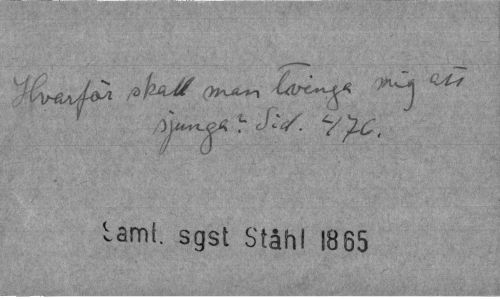 Hvarför skall man tvinga mig att
sjunga? Sid. 476.
Saml. sgst Ståhl 1865